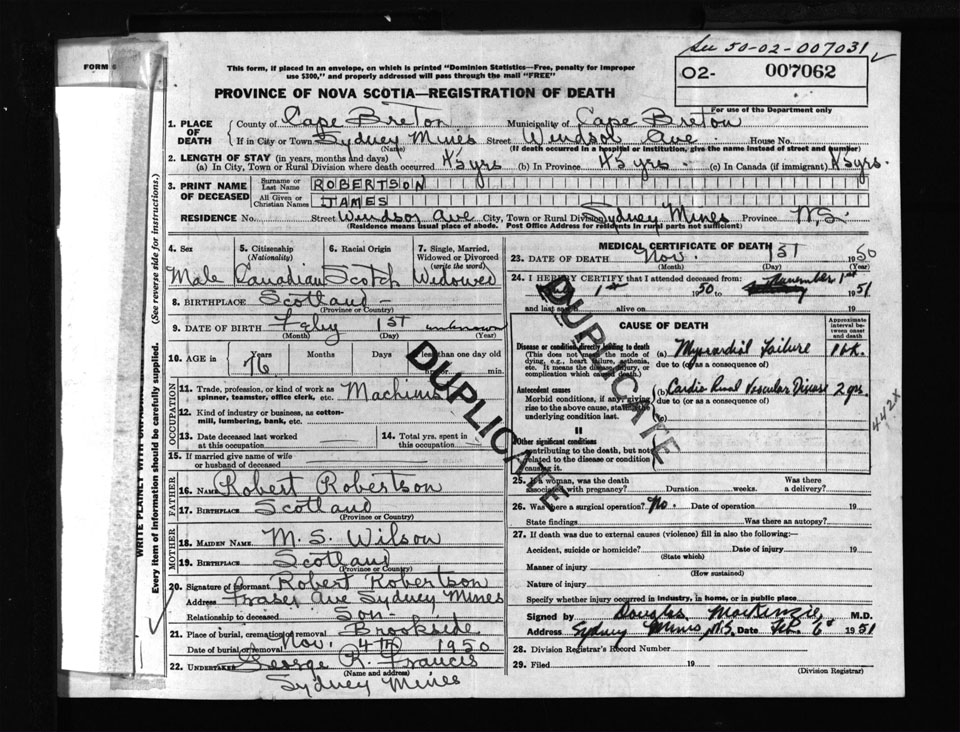 See 50-02-007031
02- 007062
For use the Department only
FORM 6
This form, if placed in an envelope, on which is printed "Dominion Statistics—Free, penalty for improper
use $300," and properly addressed will pass through the mail "FREE"
PROVINCE OF NOVA SCOTIA—REGISTRATION OF DEATH
1. PLACE OF DEATH County of Cape Breton Municipality of Cape Breton
If in City or Town Sydney Mines Street Windsor Ave House No.
(Name) (If death occurred in a hospital or institution, give the name instead of street and number)
2. LENGTH OF STAY (in years, months and days)
(a) In City, Town or Rural Division where death occurred 45 yrs (b) In Province 45 yrs. (c) In Canada (if immigrant) 45 yrs.
3. PRINT NAME OF DECEASED Surname or Last Name ROBERTSON
All Given or Christian Names JAMES
RESIDENCE No. Street Windsor Ave City, Town or Rural Division Sydney Mines Province N.S.
(Residence means usual place of abode. Post Office Address for residents in rural parts not sufficient)
4. Sex 5. Citizenship (Nationality) 6. Racial Origin 7. Single, Married, Widowed or Divorced (write the word)
Male Canadian Scotch Widower
8. BIRTHPLACE Scotland
(Province or Country)
9. DATE OF BIRTH Feby 1st unknown
(Month) (Day) (Year)
10. AGE in 76 Years Months Days less than one day old
min.
OCCUPATION
11. Trade, profession, or kind of work as spinner, teamster, office clerk, etc. Machinist
12. Kind of industry or business, as cotton-mill, lumbering, bank, etc.
13. Date deceased last worked at this occupation 14. Total yrs. spent in this occupation
15. If married give name of wife or husband of deceased
FATHER
16. NAME Robert Robertson
17. BIRTHPLACE Scotland
(Province or Country)
MOTHER
18. MAIDEN NAME M. S. Wilson
19. BIRTHPLACE Scotland
(Province or Country)
20. Signature of informant Robert Robertson
Address Fraser Ave Sydney Mines
Relationship to deceased Son
21. Place of burial, cremation or removal Brookside
Date of burial or removal Nov. 4th 1950
22. UNDERTAKER George R. Francis
(Name and address)
Sydney Mines
MEDICAL CERTIFICATE OF DEATH
23. DATE OF DEATH Nov. 1st 1950
(Month) (Day) (Year)
24. I HEREBY CERTIFY that I attended deceased from:
1st 1950 to November 1st 1951
and last saw alive on 19
CAUSE OF DEATH
Approximate interval between onset and death
Disease or condition directly leading to death (a) Myocardial Failure 1 hr.
(This does not mean the mode of dying, e.g., heart failure, asthenia, etc. It means the disease, injury, or complication which caused death.)
due to (or as a consequence of)
Antecedent causes (b) Cardio Renal Vascular Disease 2 yrs.
Morbid conditions, if any, giving rise to the above cause, stating the underlying condition last.
due to (or as a consequence of)
442X
II
Other significant conditions
contributing to the death, but not related to the disease or condition causing it.
25. If a woman, was the death associated with pregnancy? Duration weeks. Was there a delivery?
26. Was there a surgical operation? No. Date of operation 19
State findings Was there an autopsy?
27. If death was due to external causes (violence) fill in also the following:—
Accident, suicide or homicide? Date of injury 19
(State which)
Manner of injury
(How sustained)
Nature of injury
Specify whether injury occurred in industry, in home, or in public place
Signed by Douglas MacKenzie, M.D.
Address Sydney Mines, N.S. Date Feb. 6 1951
28. Division Registrar's Record Number
29. Filed 19
(Division Registrar)
DUPLICATE
DUPLICATE
Every item of information should be carefully supplied. (See reverse side for instructions.)